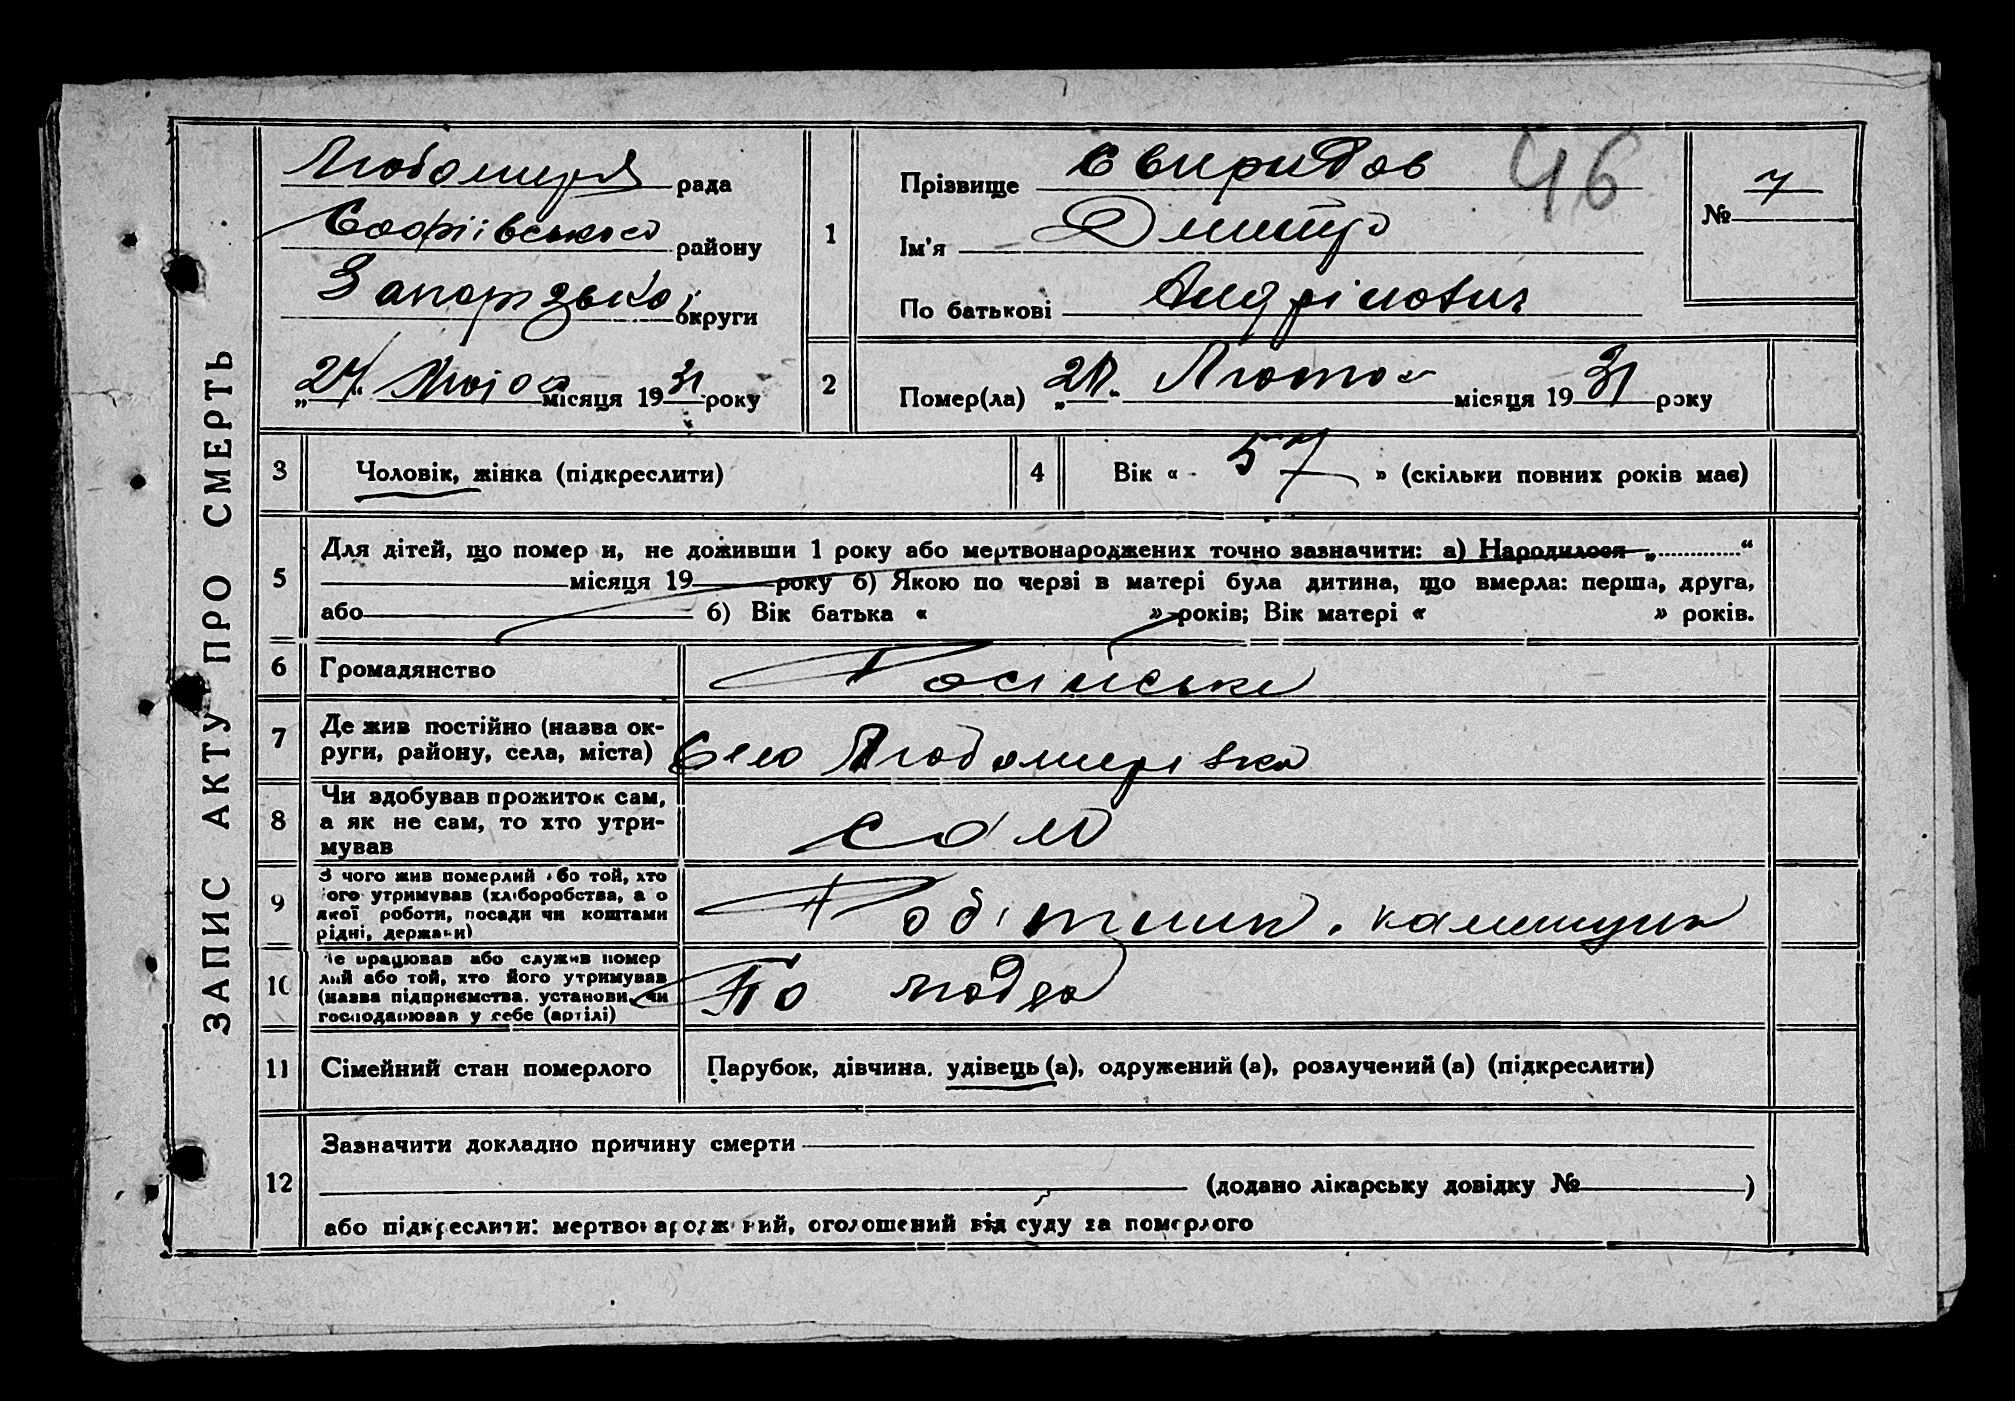 ЗАПИС АКТУ ПРО СМЕРТЬ
рада
Софіївського району
Запорізької округи
„24“ місяця 1931 року
1
Прізвище Свиридов
Ім'я Дмитро
По батькові
46
№ 7
2
Помер(ла) Лютого місяця 1931 року
3
Чоловік, жінка (підкреслити)
4
Вік « 57 » (скільки повних років має)
5
Для дітей, що помер и, не доживши 1 року або мертвонароджених точно зазначити: а) Народилося „ “
місяця 19 року б) Якою по черзі в матері була дитина, що вмерла: перша, друга,
або б) Вік батька « » років; Вік матері « » років.
6
Громадянство Російське
7
Де жив постійно (назва ок-
руги, району, села, міста) Село Любомирівка
8
Чи здобував прожиток сам,
а як не сам, то хто утри-
мував
сам
9
З чого жив померлий або той, хто
ого утримував (хліборобства, а о
якої роботи, посади чи коштами
рідні, держави)
Робітник, каменщик
10
е працював або служив помер
лий або той, хто його утримував
(назва підприємства, установи, чи
господарював у себе (артілі)
По людях
11
Сімейний стан померлого
Парубок, дівчина, удівець (а), одружений (а), розлучений (а) (підкреслити)
12
Зазначити докладно причину смерти
(додано лікарську довідку № )
або підкреслити: мертвонароджений, оголошений від суду за померлого